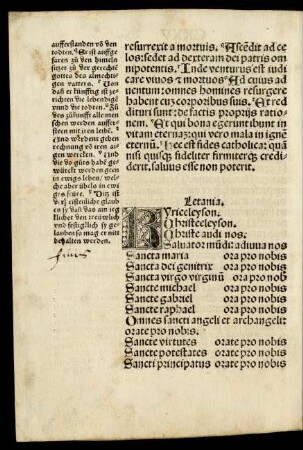 aufferstanden võ ven
todten. Er ist auffge
faren zů ven himeln
sitzet zů ver gerechtẽ
gottes des almechti
gen vatters.
Dañ er künfftig ist ze
richten vie lebendigẽ
vnd vie todten. Zů
ves zůkunfft alle men
schen werden auffer
steen mit iren leiben.
Vnd werdent geben
rechnung võ iren aig
gen wercken. Vnd
vie vo gůts habẽ ge
würckt werden geen
in ewigs leben, wel
che aber übels in ewi
ges feüre. Ditz ist
ver cristenliche glaub
es sey daß vas ain yeg
klicher ven treülich
vnd festigklich ge
lauben so mag er nit
behalten werden.
finis
resurrexit a mortuis. Ascẽdit ad ce
los: sedet ad dexteram dei patris om
nipotentis. Inde venturus est iudi
care viuos et mortuos. Ad cuius ad
uentum: omnes homines resurgere
habent cuz corporibus suis. Et red
dituri sunt: de factis proprijs ratio-
nem. Et qui bona egerunt ibunt in
vitam eternaz: qui vero mala in ignẽ
eternũ. Hec est fides catholica: quã
nisi quisqz fideliter firmiterqz credi-
derit. saluus esse non poterit.
Letania.
Kyrieeleyson.
Christeeleyson.
Christe audi nos.
Saluator mũdi: adiuua nos
Sancta maria ora pro nobis
Sancta dei genitrix ora pro nobis
Sancta virgo virginũ ora pro nob
Sancte michael ora pro nobis
Sancte gabriel ora pro nobis
Sancte raphael ora pro nobis
Omnes sancti angeli et archangeli:
orate pro nobis.
Sancte virtutes orate pro nobis
Sancte potestates orate pro nobis
Sancti principatus orate pro nobis